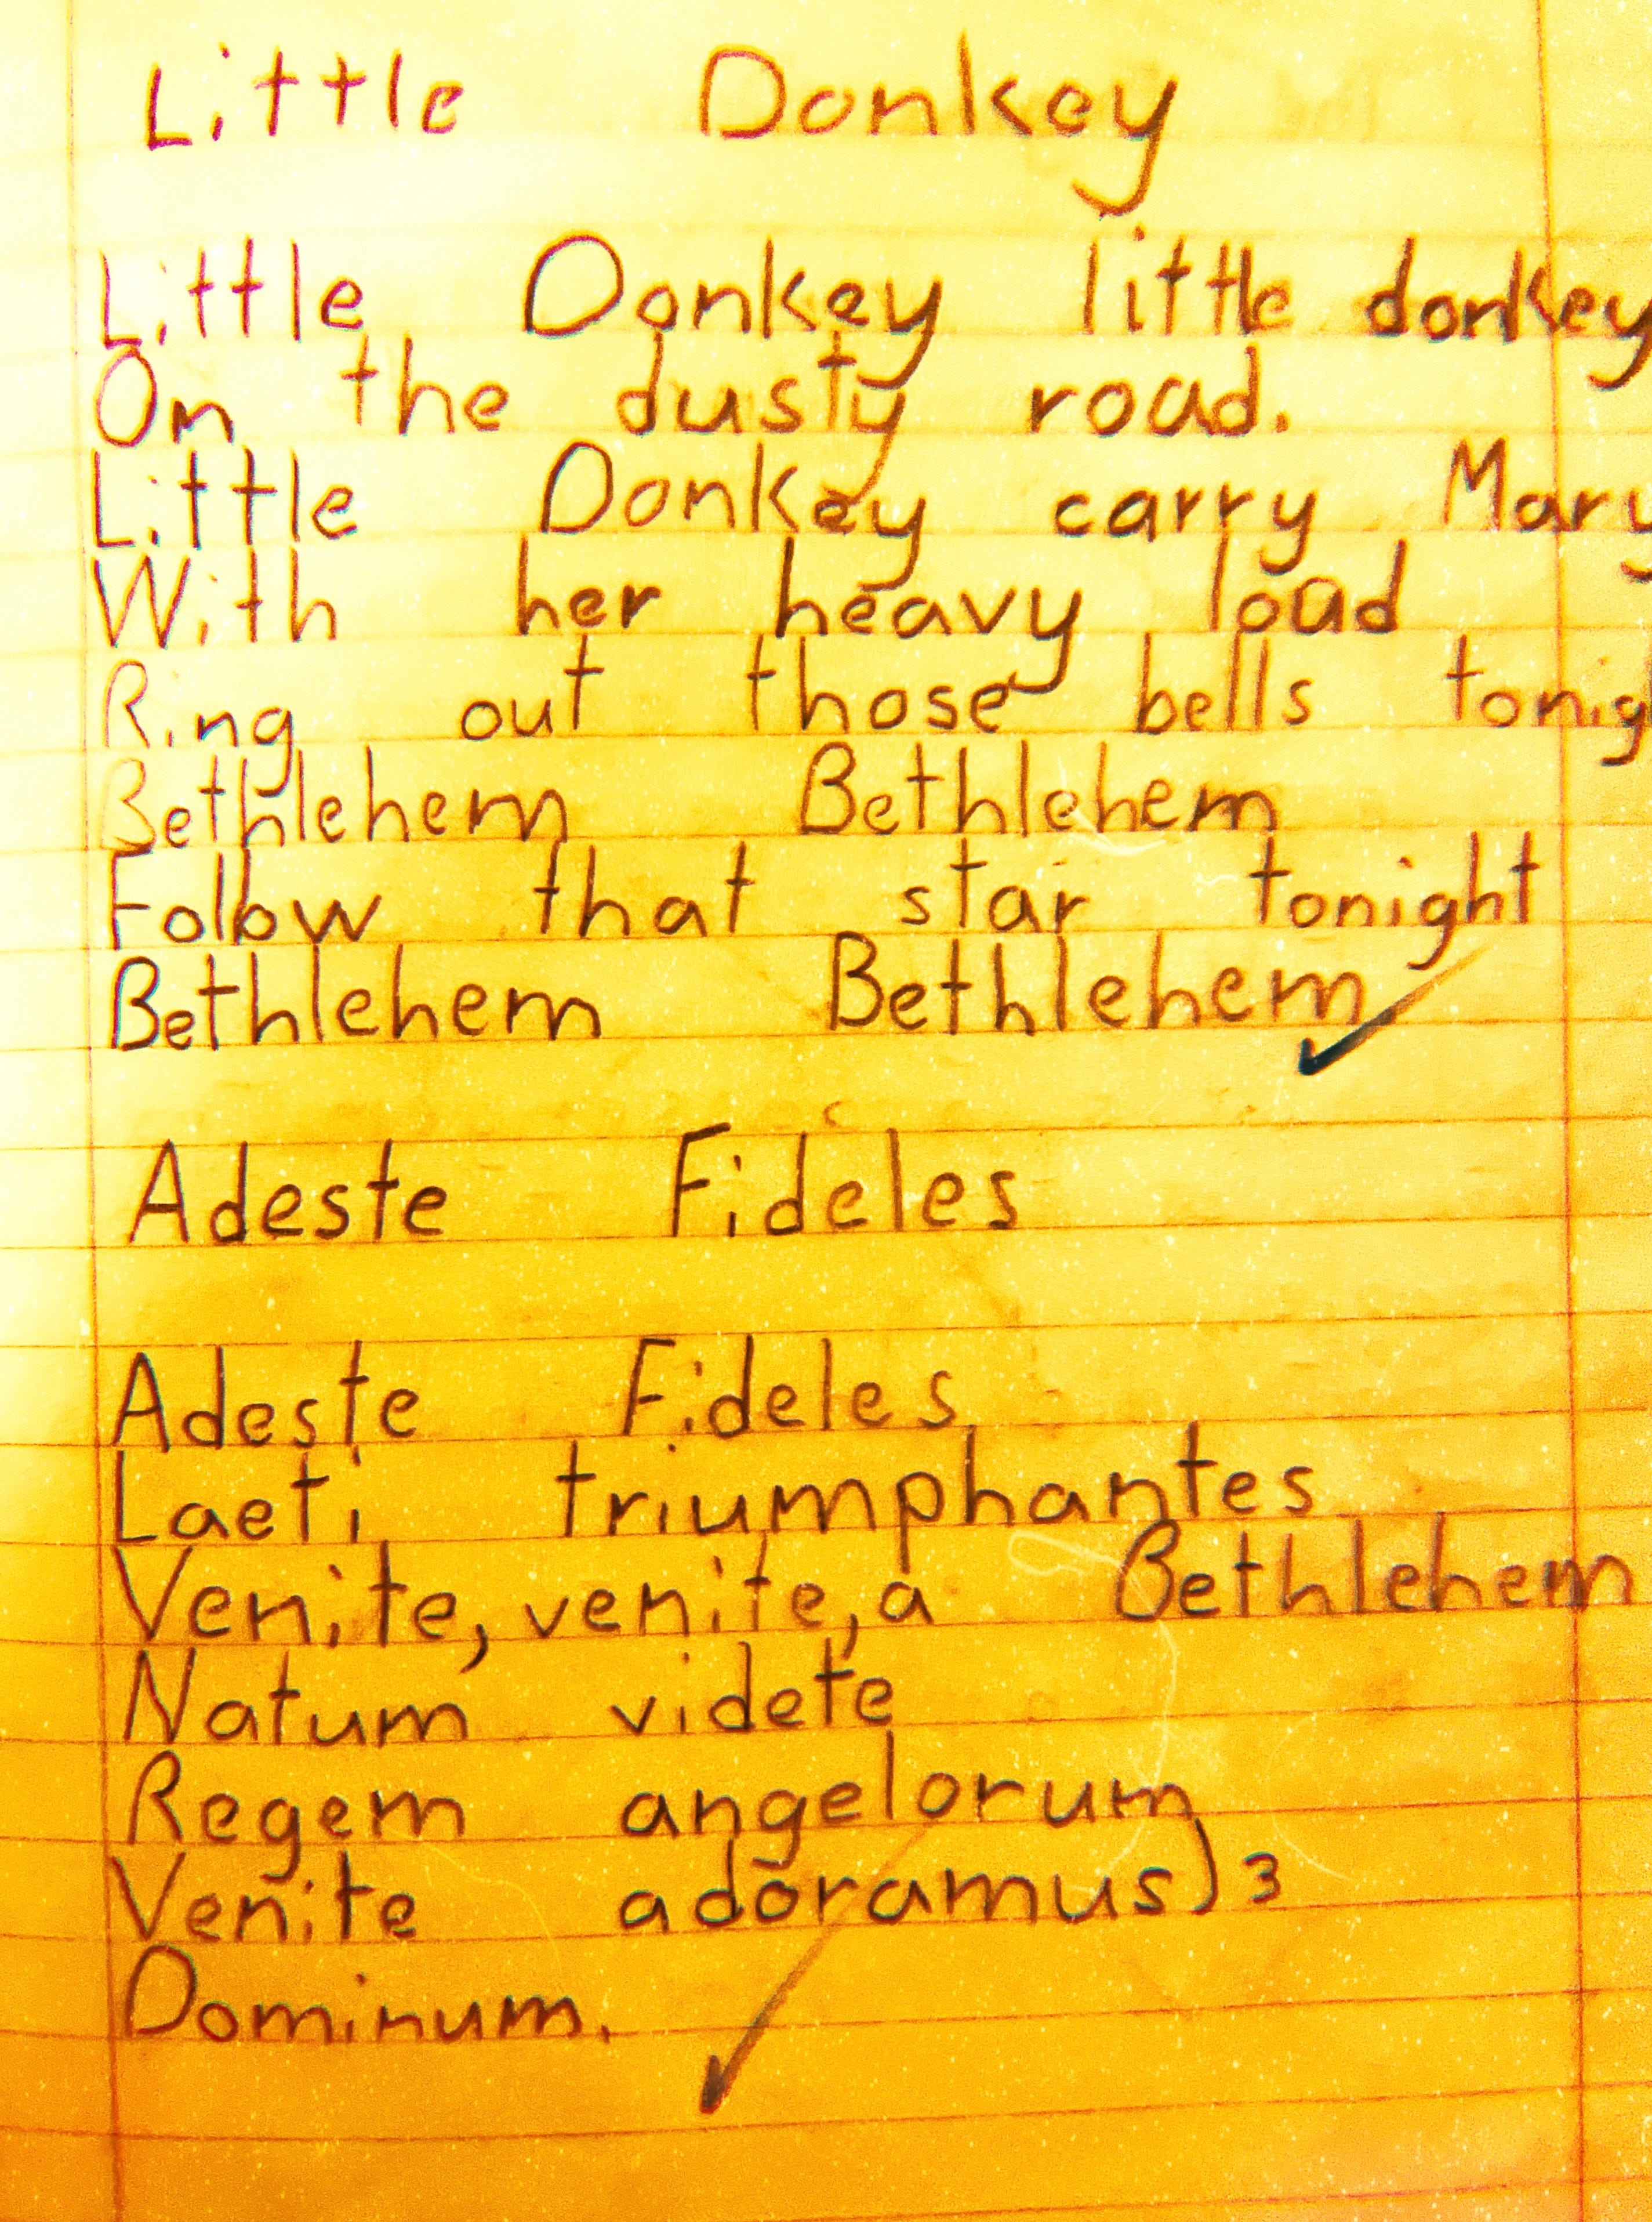 Little Donkey
Little Donkey little donkey
On the dusty road.
Little Donkey carry Mary
With her heavy load
Ring out those bells tonig
Bethlehem Bethlehem
Follow that star tonight
Bethlehem Bethlehem
Adeste Fideles
Adeste Fideles
Laeti triumphantes
Venite, venite, a Bethlehem
Natum videte
Regem angelorum
Venite adoramus) 3
Dominum.